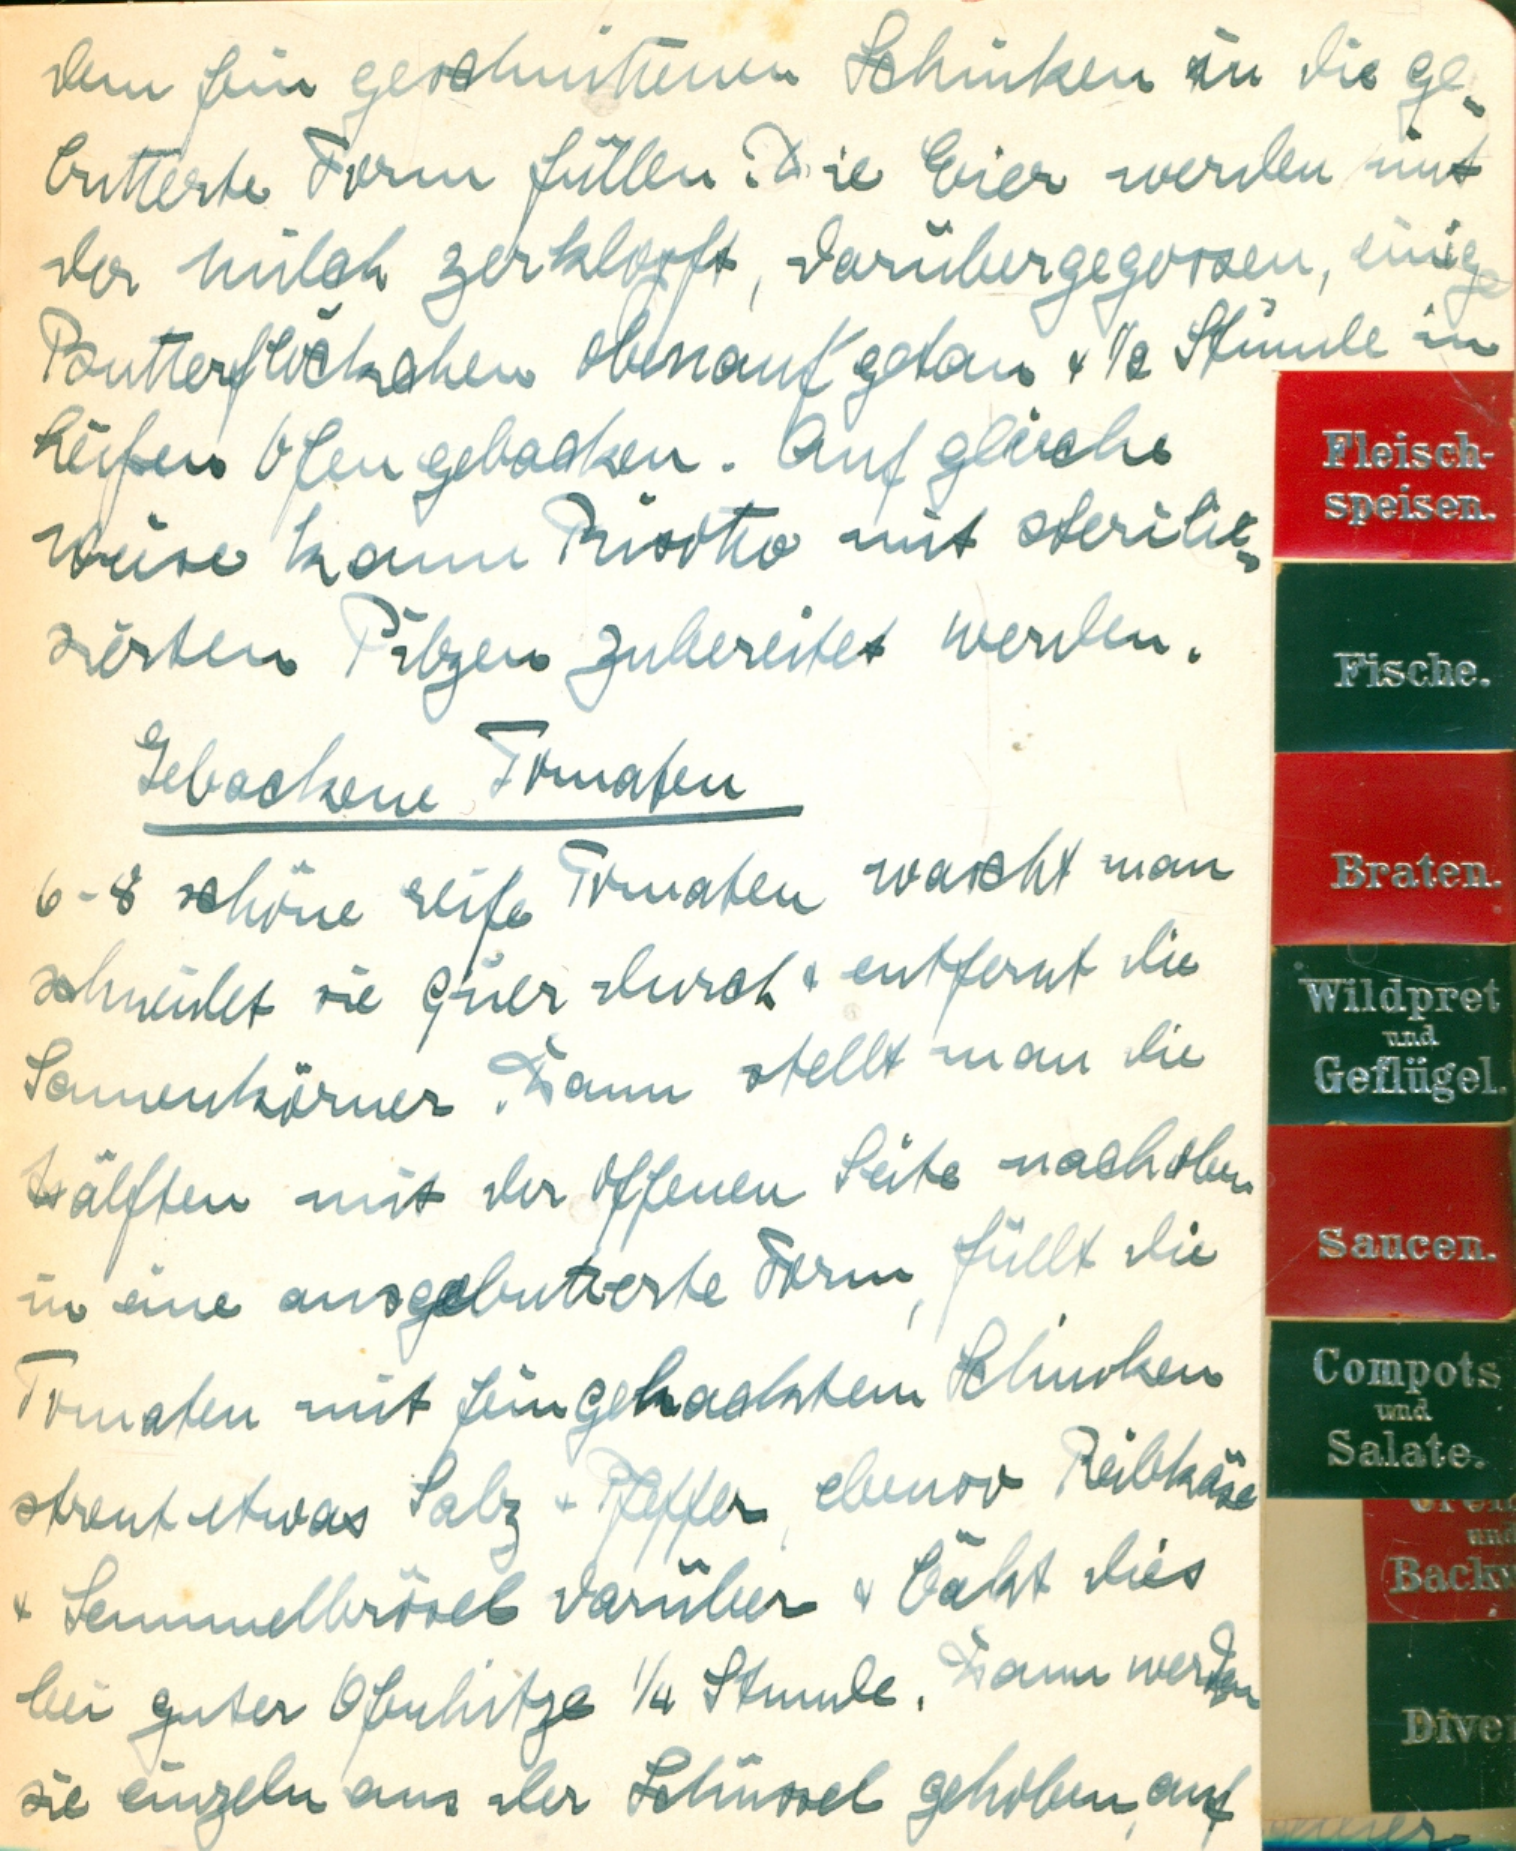 dem fein geschnittenen Schinken in die ge-
butterte Form füllen. Die Eier werden mit
der Milch zerklopft, darübergegossen, einige
Butterflöckchen obenauf getan & 1/2 Stunde in
heißen Ofen gebacken. Auf gleiche
Weise kann Risotto mit sterili-
sierten Pilzen zubereitet werden.
Gebackene Tomaten
6-8 schöne reife Tomaten wascht man
schneidet sie quer durch & entfernt die
Samenkörner. Dann stellt man die
Hälften mit der offenen Seite nach oben
in eine ausgebutterte Form, füllt die
Tomaten mit feingehacktem Schinken
streut etwas Salz & Pfeffer, ebenso Reibkäse
& Semmelbrösel darüber & bäkt dies
bei guter Ofenhitze 1/4 Stunde. Dann werden
sie einzeln aus der Schüssel gehoben, auf
Fleisch-
speisen.
Fische.
Braten.
Wildpret
und
Geflügel.
Saucen.
Compots
und
Salate.
und
Backw
Diver